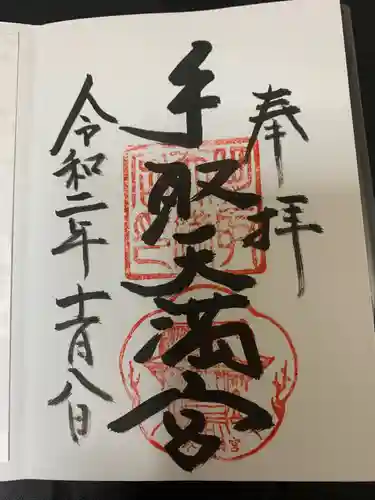 奉拝
手取天満宮
令和二年十一月八日